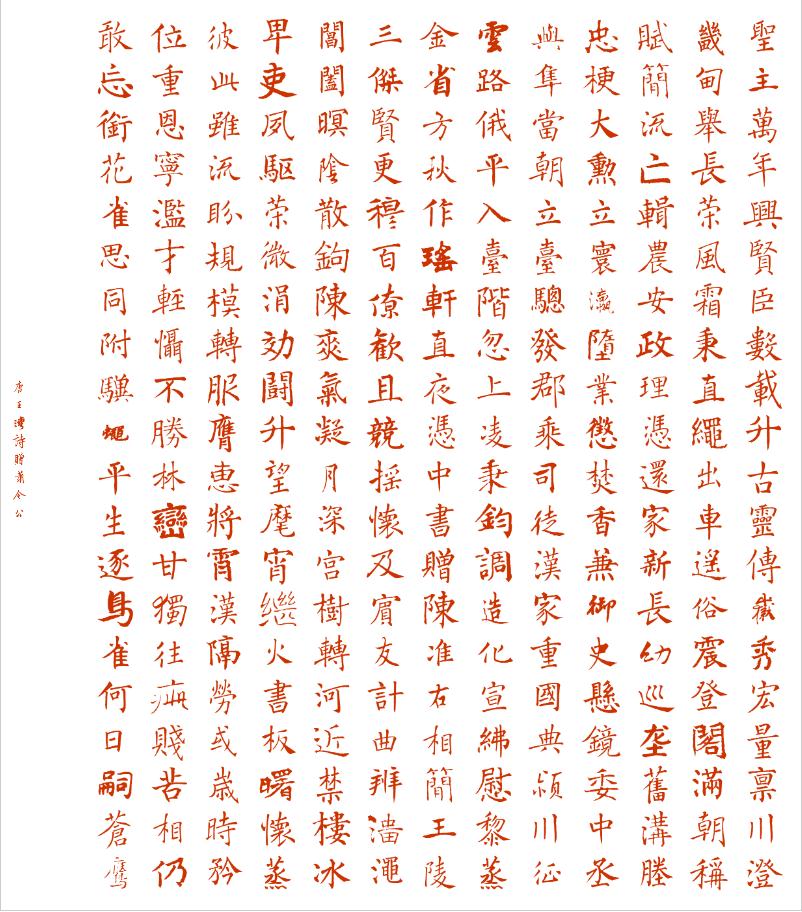 聖主萬年興賢臣數載升古靈傳嶽秀宏量禀川澄
畿甸舉長榮風霜秉直繩出車遥俗震登閣滿朝稱
賦簡流亡輯農安政理憑還家新長幼巡壟舊溝塍
忠梗大勲立寰瀛墮業懲焚香兼御史懸鏡委中丞
輿隼當朝立臺驄發郡乘司徒漢家重國典潁川征
雲路俄平入臺階忽上凌秉鈞調造化宣綍慰黎蒸
金省方秋作瑤軒直夜憑中書贈陳准右相簡王陵
三傑賢更穆百僚歡且競摇懷及賔友計曲辨澠
閶闔暝陰散鉤陳爽氣凝月深宫樹轉河近禁樓冰
卑吏夙驅榮微涓効闘升望麾宵繼火書板曙懷蒸
彼此雖流盼規模轉服膺恵將霄漢隔勞或歳時矜
位重恩寧濫才輕懾不勝林巒甘獨往痾賤苦相仍
敢忘銜花雀思同附驥蠅平生逐鳥雀何日嗣蒼鷹
唐王灣詩贈蕭令公